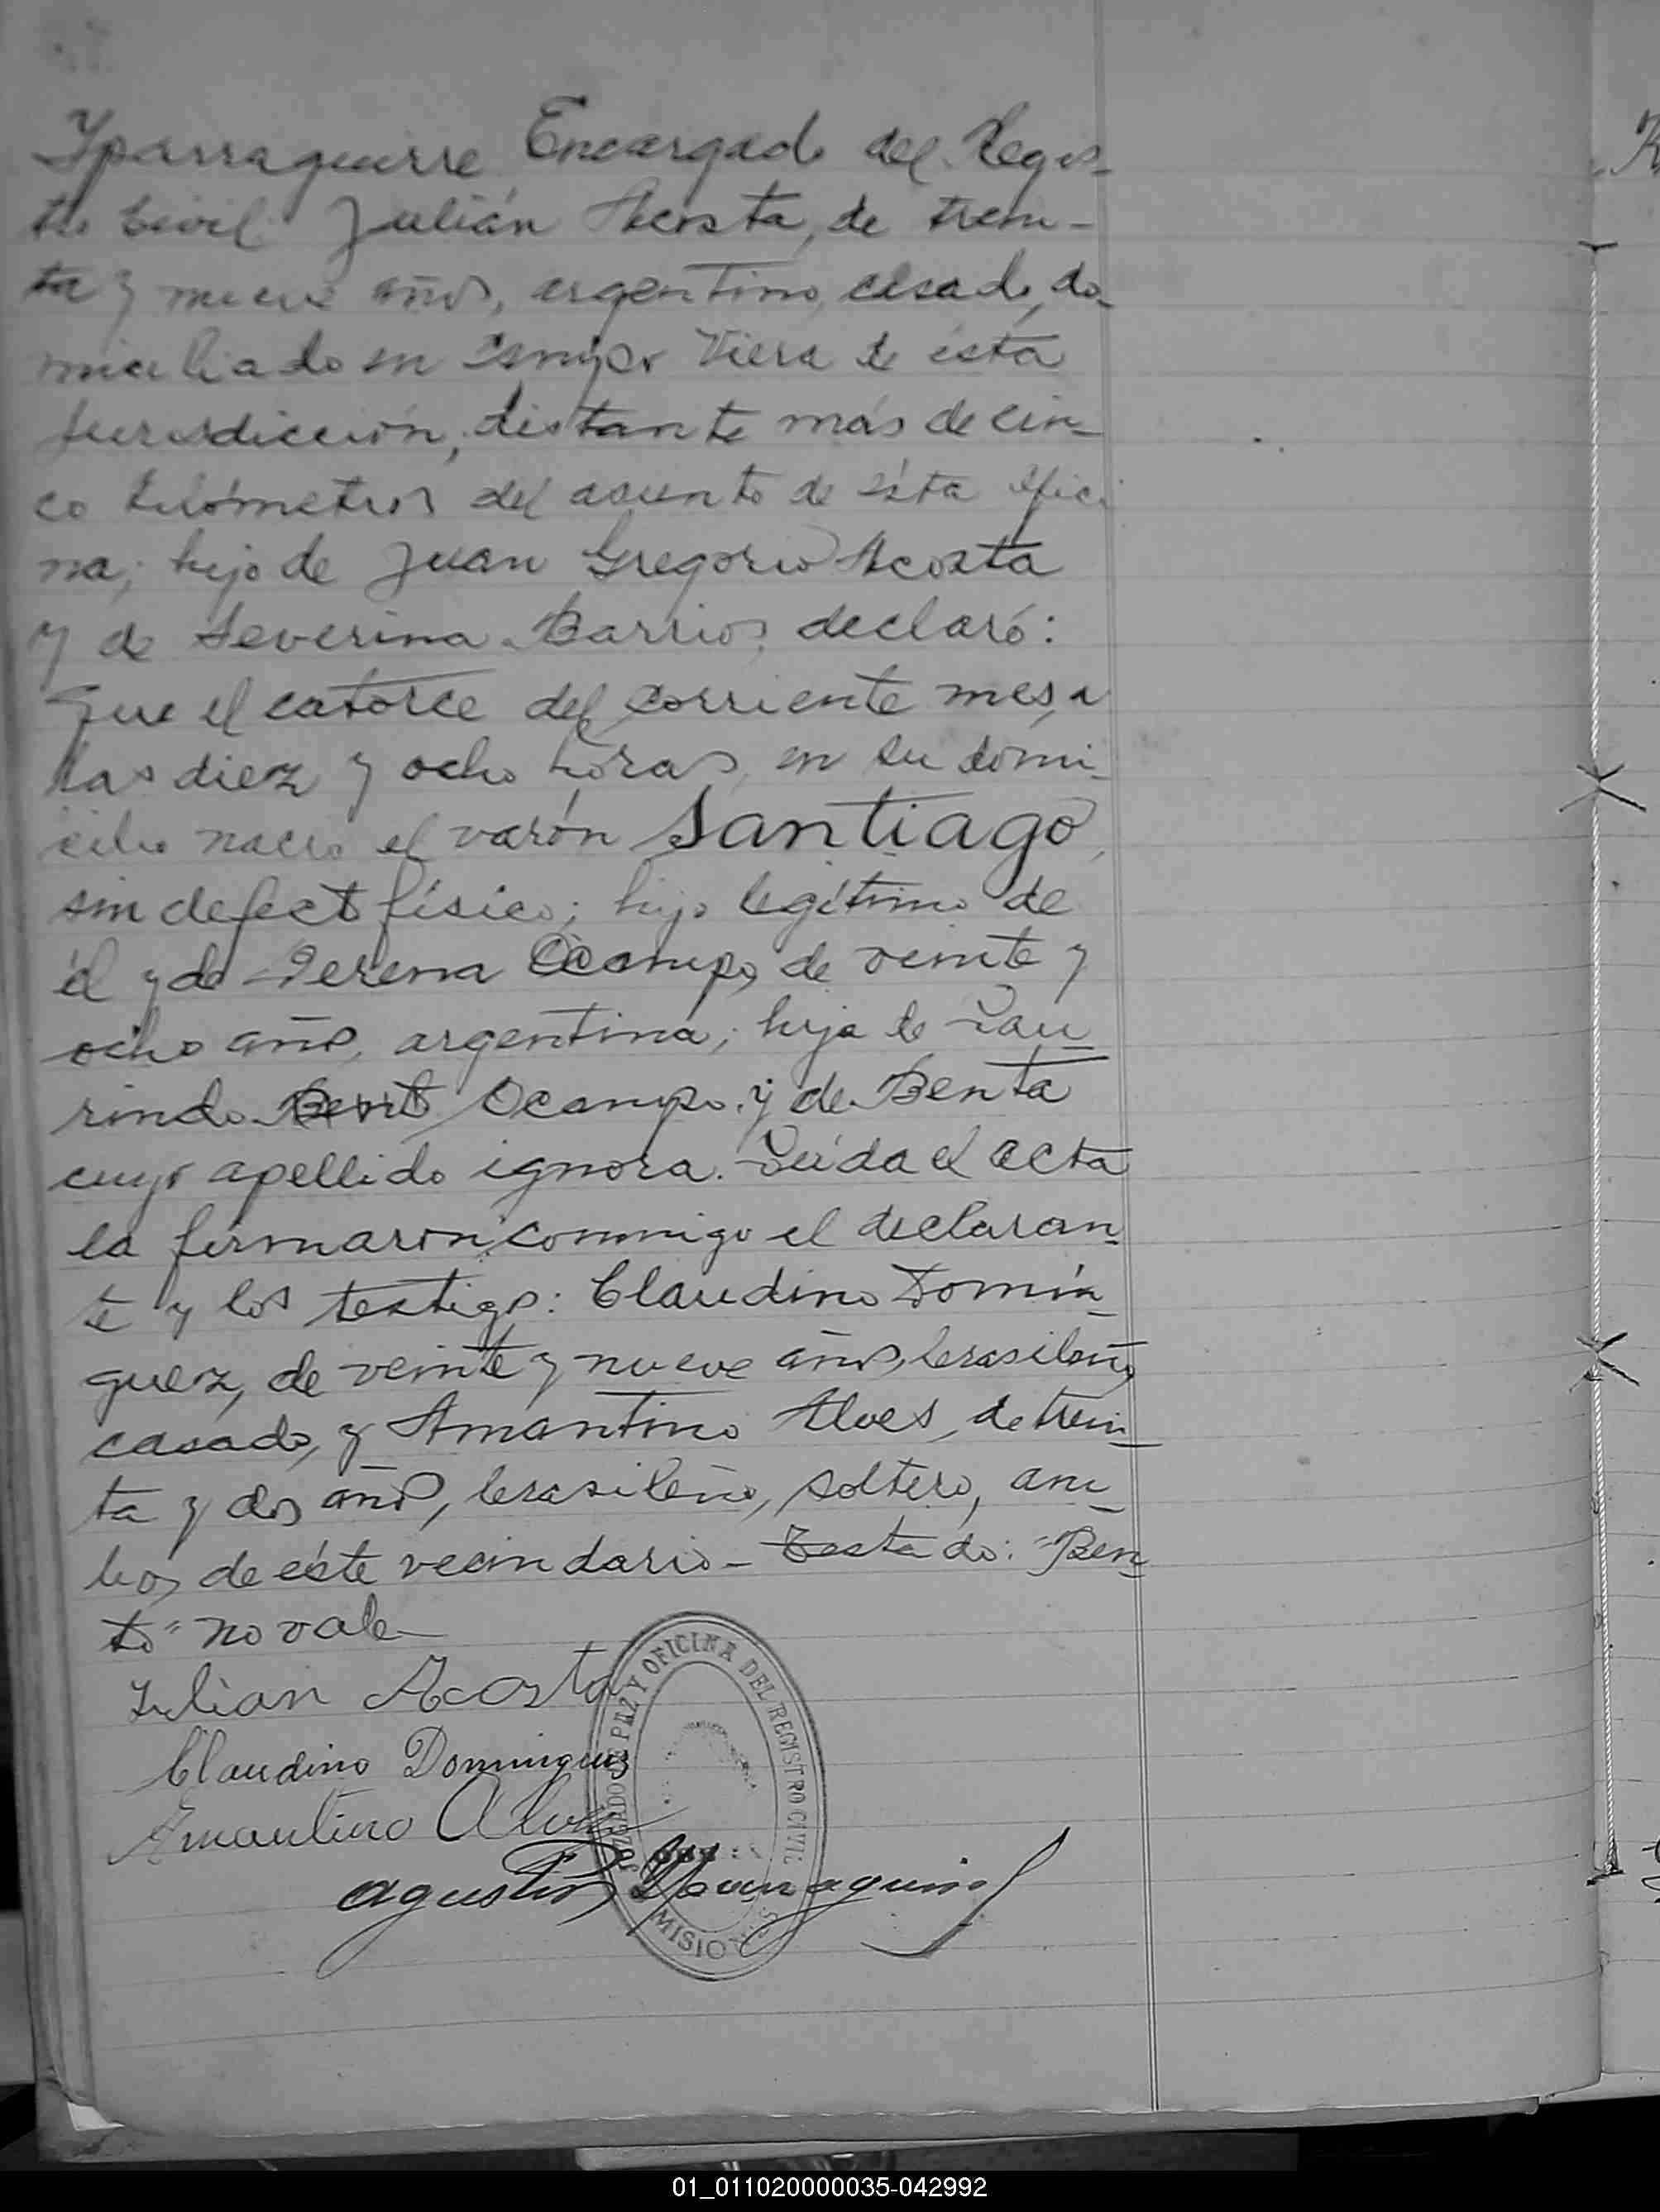 Yparraguirre Encargado del Regis-
tro Civil Julián Acosta, de trein-
ta y nueve años, argentino, casado, do-
miciliado en Campo Viera de ésta
jurisdicción, distante más de cin-
co kilómetros del asiento de ésta ofici
na; hijo de Juan Gregorio Acosta
y de Severina Barrios, declaró:
Que el catorce del corriente mes, a
las diez y ocho horas, en su domi-
cilio nació el varón Santiago,
sin defecto físico; hijo legítimo de
él y de Ocampo, de veinte y
ocho años, argentina; hija de Lau-
rindo Bento Ocampo y de Benta
cuyo apellido ignora. Leída el acta
la firmaron conmigo el declaran-
te y los testigos: Claudino Domín-
guez, de veinte y nueve años, brasileño,
casado, y Amantino Alves, de trein-
ta y dos años, brasileño, soltero, am-
bos de éste vecindario - Testado: "Ben-
to" no vale
Julian Acosta
Claudino Dominguez
Amantino Alves
Agustin Yparraguirre
JUZGADO DE PAZ Y OFICINA DEL REGISTRO CIVIL
MISIONES
K
01_011020000035-042992